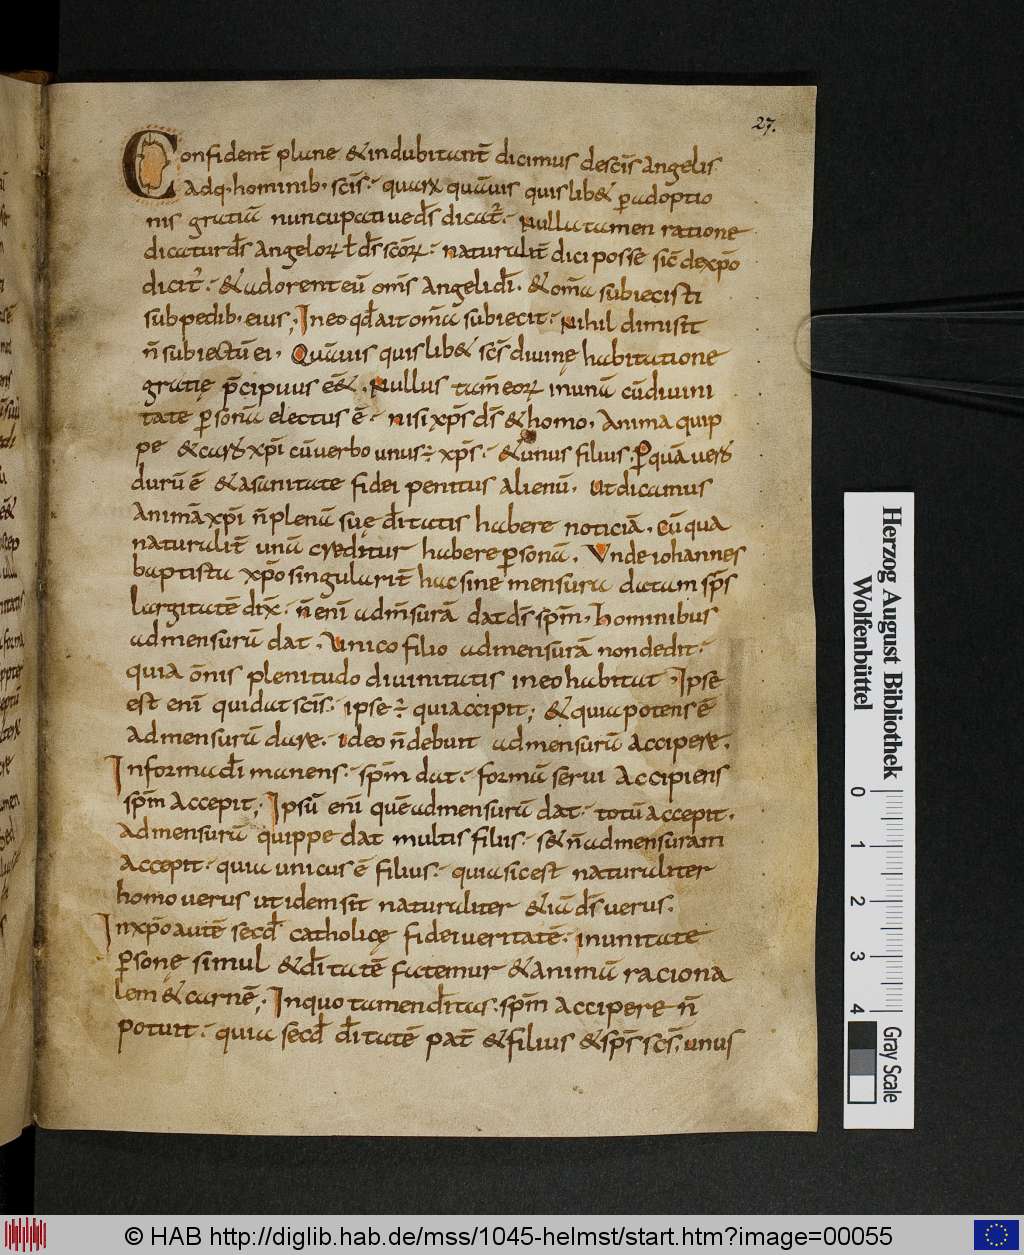 27.
Confident̄ plane &indubitant̄ dicimus descīs angelis
Adq;hominib; scīs; quarx quāuis quislib& ꝑadoptio
nis gratiā nuncupatiue dš dicat̄; Nulla tamen ratione
dicatur dš angeloꝝ ł dš scōꝝ; naturalit̄ dici posse sic̄ de xp̄o
dicit̄; &adorent eū om̄s angeli dī; &om̄a subiecisti
sub pedib; eius; In eo qđ ait om̄a subiecit; Nihil dimisit
n̄ subiectū ei. Quāuis quislib& scs̄ diuinę habitatione
gratię p̄cipuus ēē&. Nullus tam̄ eoꝝ in unā cū diuini
tate ꝑsonā electus ē; nisi xp̄s dš & homo. Anima quip
pe & caro xp̄i cū uerbo unus ÷ xp̄s; &unus filius. Perquā uero
durū ē &a sanitate fidei penitus alienū. Ut dicamus
Animā xp̄i n̄ plenā suę dītatis habere noticiā. cū qua
naturalit̄ unā creditur habere ꝑsonā. Unde iohannes
baptista xp̄o singularit̄ hac sine mensura datam sp̄s
largitatē dix̄; n̄ enī ad m̄surā dat dš sp̄m. hominibus
ad mensurū dat. Unico filio ad mensurā non dedit;
quia om̄is plenitudo diuinitatis in eo habitat. Ipse
est enī qui dat scīs; ipse ÷ qui accipit; & quia potens ē
Ad mensurū dare. ideo n̄ debuit ad mensurū accipere.
In forma dī manens; sp̄m dat; formā serui accipiens
sp̄m accepit; Ipsū enī quē ad mensurū dat; totū accepit.
Ad mensurū quippe dat multis filiis; s&n̄ ad mensuram
accepit; quia unicus ē filius; quia sic est naturaliter
homo uerus ut idem sit naturaliter &iā dš uerus;
In xp̄o autē secđ catholicę fidei ueritatē; in unitate
ꝑsone simul &dītatē fatemur &animā raciona
lem & carnē; In quo tamen dītas. sp̄m accipere n̄
potuit; quia secđ dītatē pat̄ &filius &sp̄s scs̄; unus
Herzog August Bibliothek
Wolfenbüttel
0 1 2 3 4
Gray Scale
© HAB http://diglib.hab.de/mss/1045-helmst/start.htm?image=00055